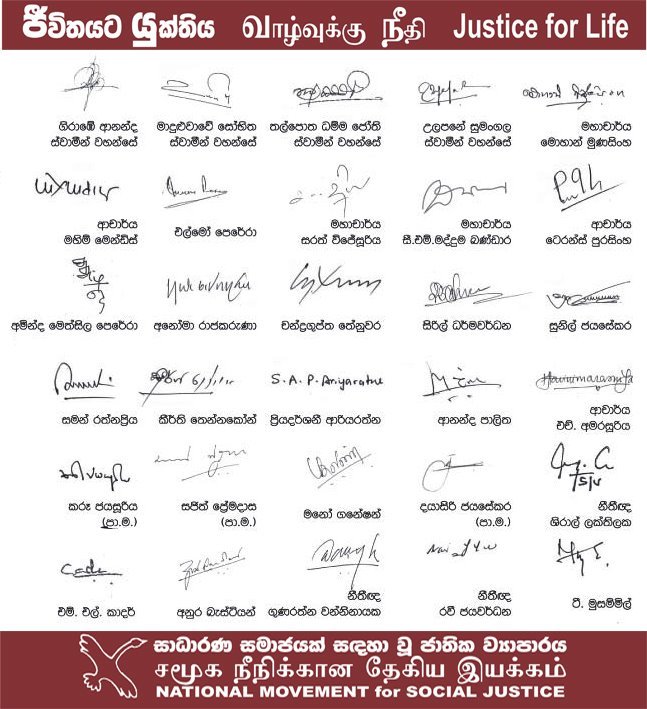 ජීවිතයට යුක්තිය வாழ்வுக்கு நீதி Justice for Life
ගිරාඹේ ආනන්ද
ස්වාමීන් වහන්සේ
මාදුළුවාවේ සෝභිත
ස්වාමීන් වහන්සේ
තල්පොත ධම්ම ජෝති
ස්වාමීන් වහන්සේ
උලපනේ සුමංගල
ස්වාමීන් වහන්සේ
මහාචාර්ය
මොහාන් මුණසිංහ
ආචාර්ය
මහිම් මෙන්ඩිස්
එල්මෝ පෙරේරා
මහාචාර්ය
සරත් විජේසූරිය
මහාචාර්ය
සී.එම්.මද්දුම බණ්ඩාර
ආචාර්ය
ටෙරන්ස් පුරසිංහ
අමින්ද මෙත්සිල පෙරේරා
අනෝමා රාජකරුණා
චන්ද්‍රගුප්ත තේනුවර
සිරිල් ධර්මවර්ධන
සුනිල් ජයසේකර
S. A. P. Ariyaratne
සමන් රත්නප්‍රිය
කීර්ති තෙන්නකෝන්
ප්‍රියදර්ශනී ආරියරත්න
ආනන්ද පාලිත
ආචාර්ය
එච්. අමරසූරිය
කරූ ජයසූරිය
(පා.ම.)
සජිත් ප්‍රේමදාස
(පා.ම.)
මනෝ ගනේෂන්
දයාසිරි ජයසේකර
(පා.ම.)
නීතීඥ
ශිරාල් ලක්තිලක
එම්. එල්. කාදර්
අනුර බැස්ටියන්
නීතීඥ
ගුණරත්න වන්නිනායක
නීතීඥ
රවී ජයවර්ධන
ටී. මුසම්මිල්
සාධාරණ සමාජයක් සඳහා වූ ජාතික ව්‍යාපාරය
சமூக நீனிக்கான தேகிய இயக்கம்
NATIONAL MOVEMENT for SOCIAL JUSTICE